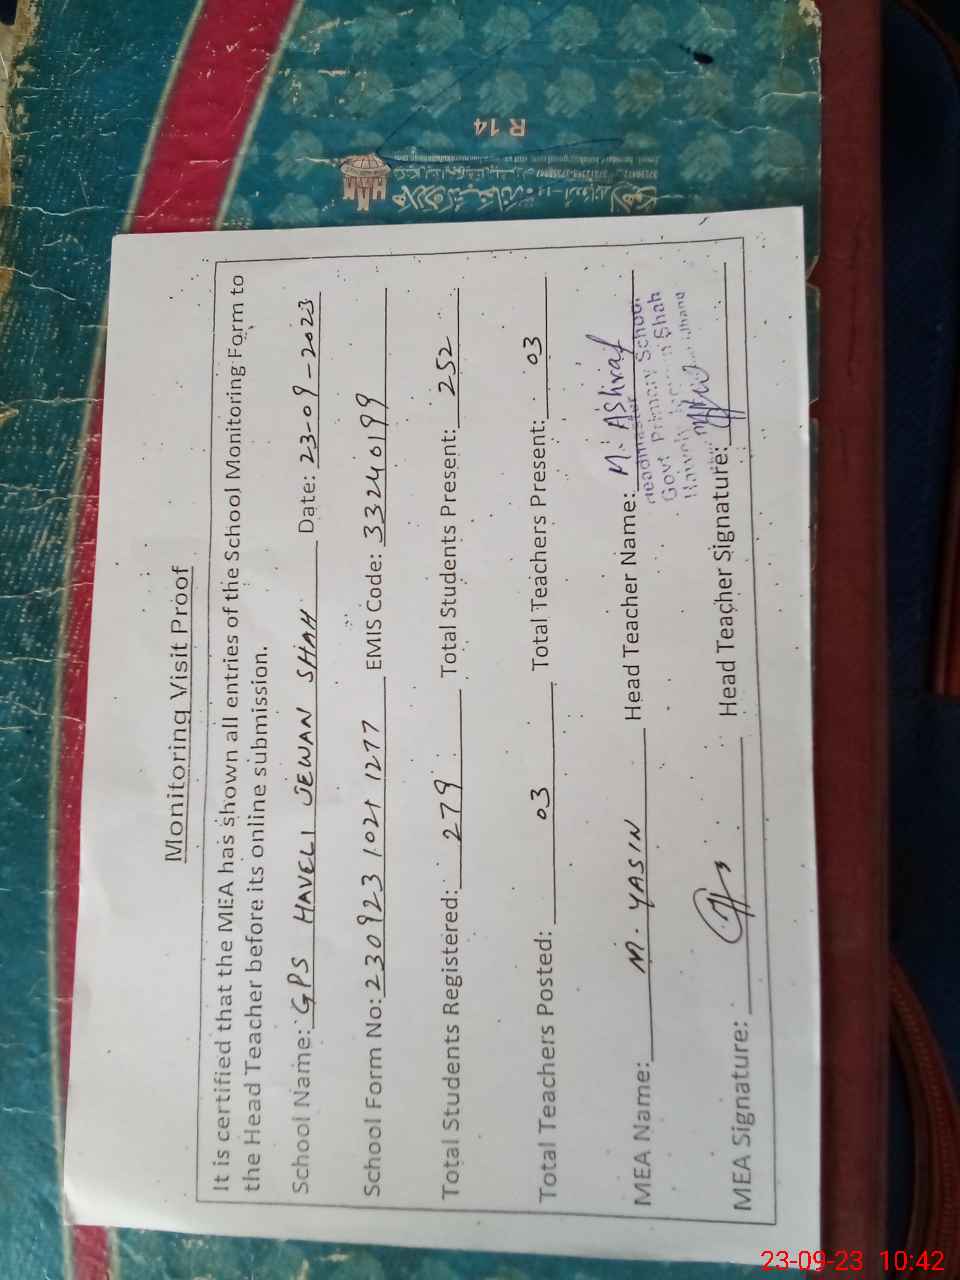 R 14
Monitoring Visit Proof
It is certified that the MEA has shown all entries of the School Monitoring Form to
the Head Teacher before its online submission.
School Name: GPS HAVELI JEWAN SHAH Date: 23-09-2023
School Form No: 230923 1021 1277 EMIS Code: 33240199
Total Students Registered: 279 Total Students Present: 252
Total Teachers Posted: 03 Total Teachers Present: 03
MEA Name: M. YASIN Head Teacher Name: M. AShraf
Headmaster
Govt Primary School
Shah
Jhang
MEA Signature: Head Teacher Signature:
23-09-23 10:42